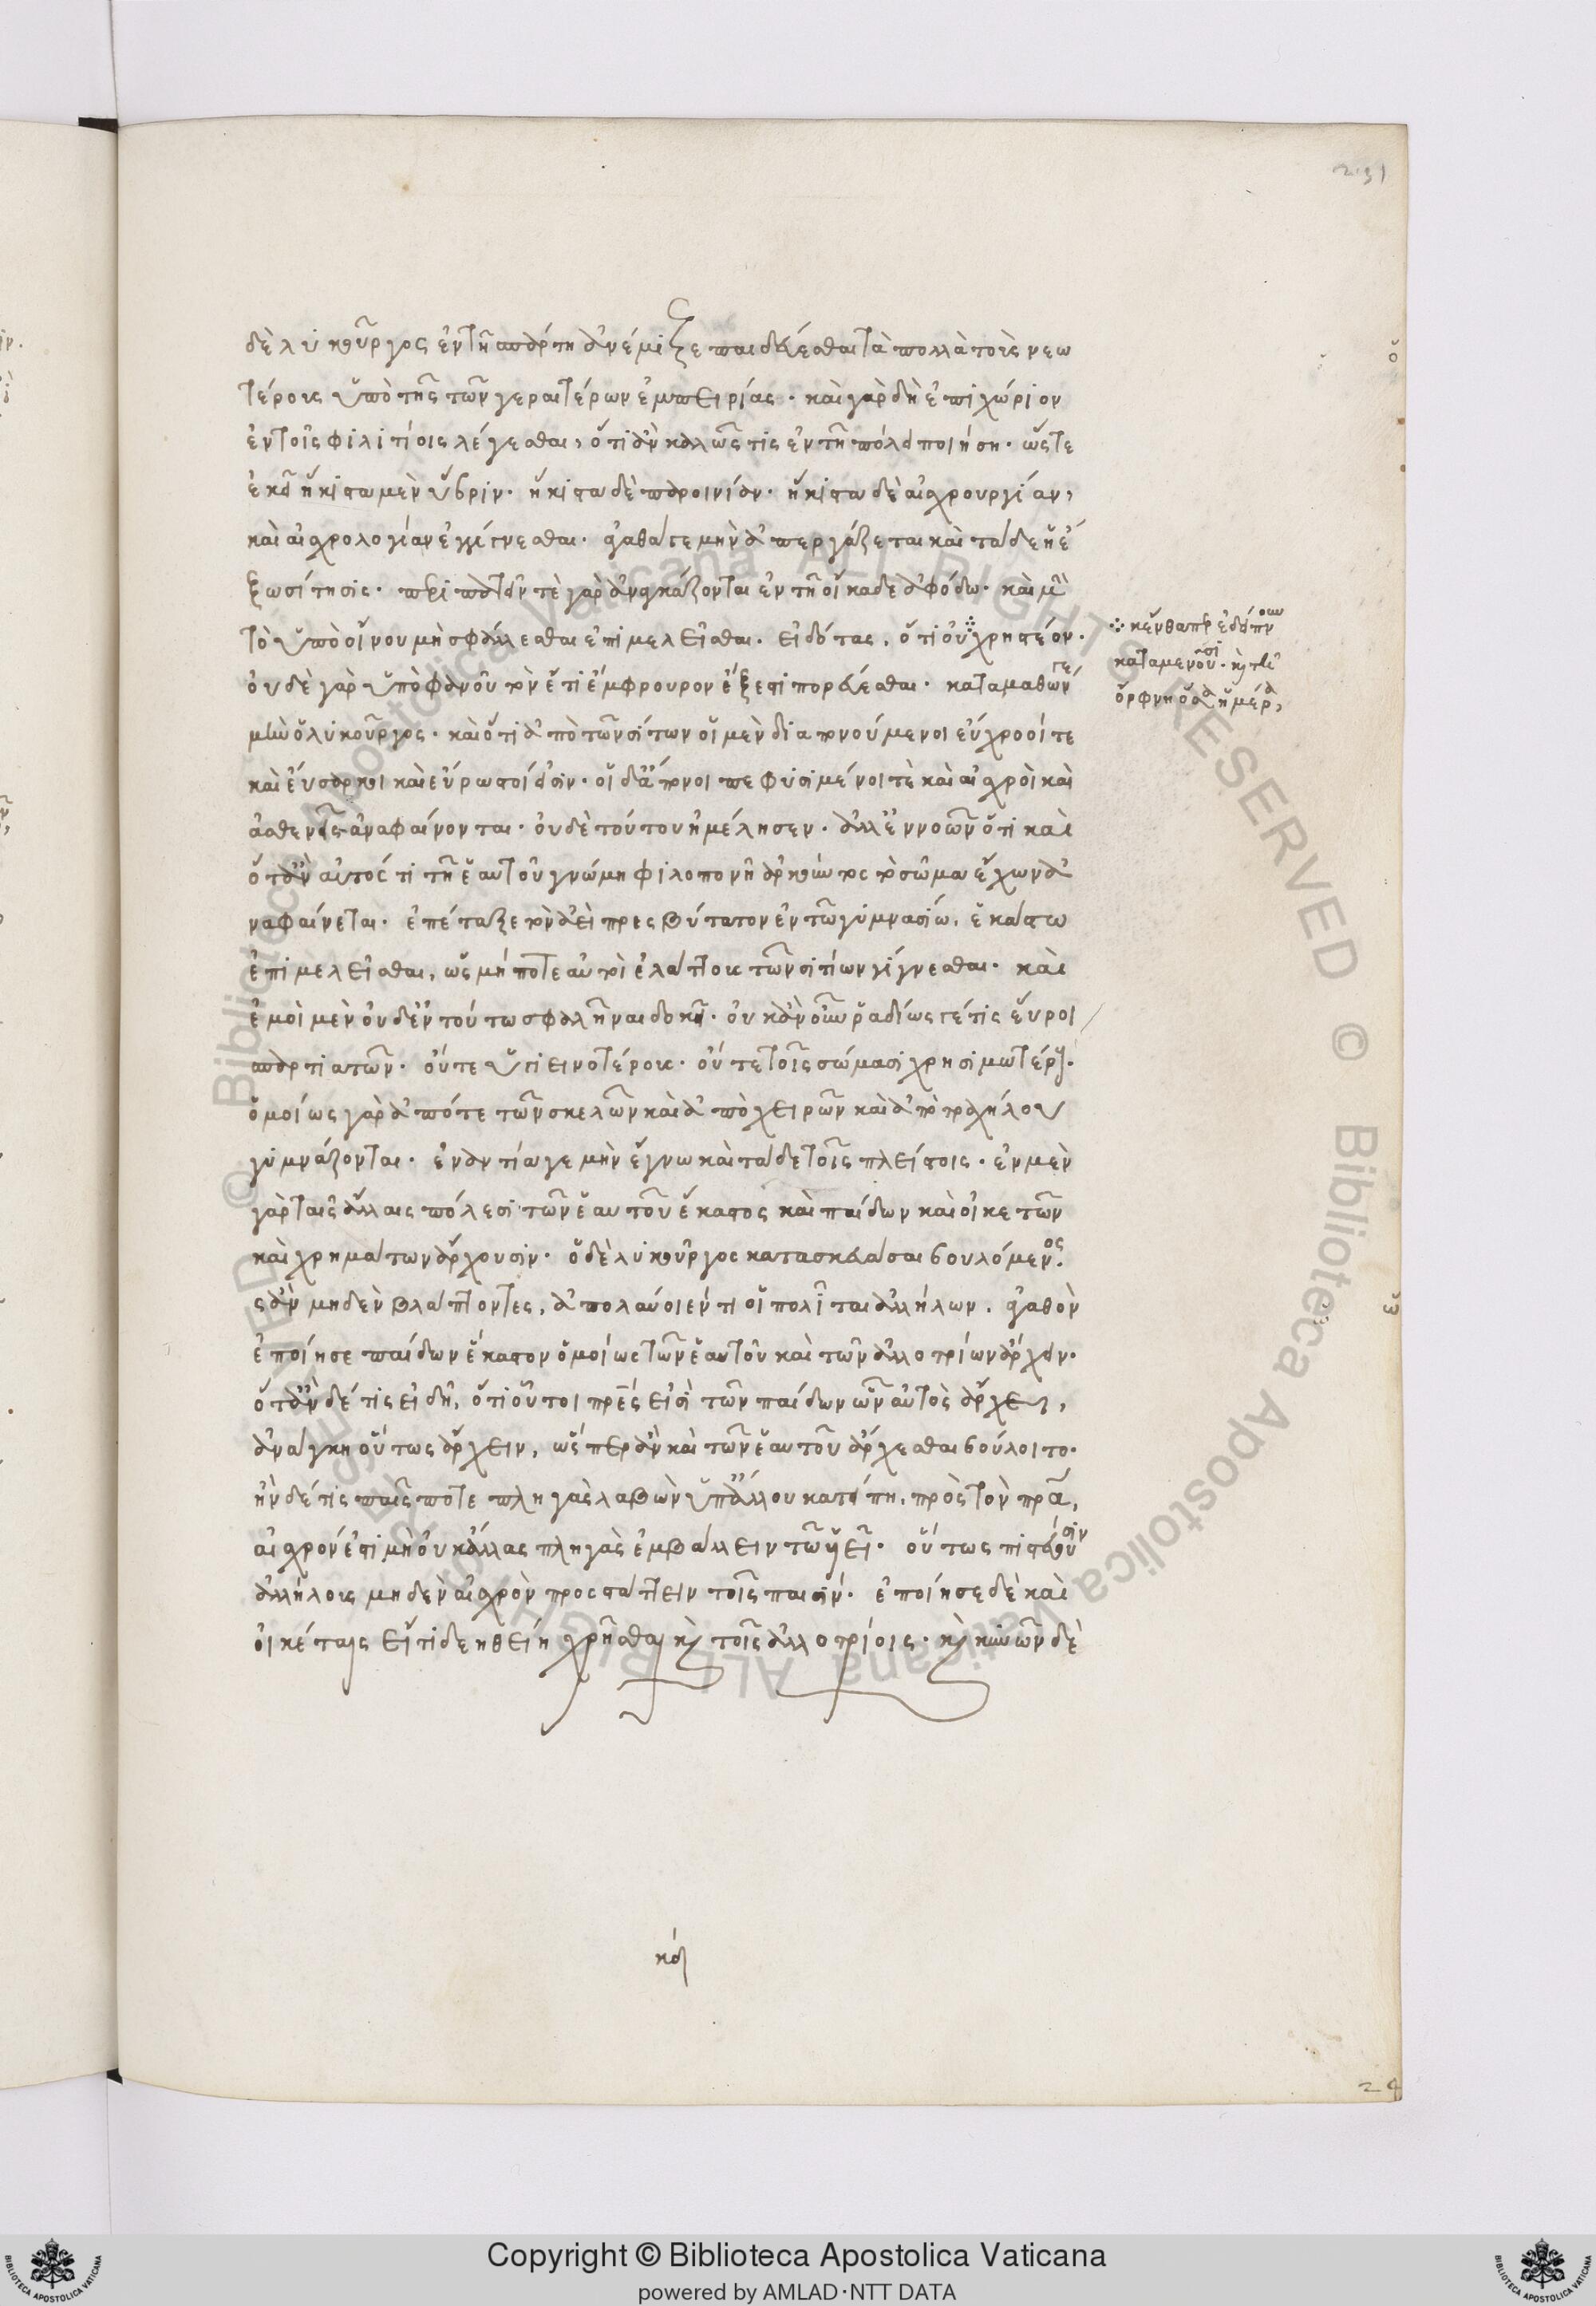 231
δὲ λυκοῦργος ἐν τῆ σπάρτη ἀνέμιξε παιδεύεσθαι τὰ πολλὰ τοὺς νεω
τέρους ὑπὸ τῆς τῶν γεραιτέρων ἐμπειρίας· καὶ γὰρ δὴ ἐπιχώριον
ἐν τοῖς φιλιτίοις λέγεσθαι, ὅτι ἂν καλῶς τις ἐν τῆ πόλει ποιήση· ὥστε
ἐκεῖ ἥκιστα μὲν ὕβριν· ἥκιστα δὲ παροινίαν· ἥκιστα δὲ αἰσχρουργίαν,
καὶ αἰσχρολογίαν ἐγγίγνεσθαι· ἀγαθά γε μὴν ἀπεργάζεται καὶ τάδε ἡ ἔ
ξω σίτησις· περιπατεῖν τὲ γὰρ ἀναγκάζονται ἐν τῆ οἴκαδε ἀφόδω· καὶ μὴ
τὸ ὑπὸ οἴνου μὴ σφάλλεσθαι ἐπιμελεῖσθαι. εἰδότας, ὅτι οὐ ⁘ χρηστέον·
⁘ κἔνθαπερ ἐδείπνουν
καταμενοῦσι· καὶ τῆ
ὄρφνη ὅσα ἡμέρα,
οὐδὲ γὰρ ὑπὸ φανοῦ τὸν ἔτι ἔμφρουρον ἔξεστι πορεύεσθαι· καταμαθών γε
μὴν ὁ λυκοῦργος· καὶ ὅτι ἀπὸ τῶν σίτων οἱ μὲν διαπονούμενοι εὔχροοί τε
καὶ εὔσαρκοι καὶ εὔρωστοί εἰσιν· οἱ δ᾽ ἄπονοι πεφυσιμένοι τὲ καὶ αἰσχροὶ καὶ
ἀσθενεῖς ἀναφαίνονται· οὐδὲ τούτου ἠμέλησεν· ἀλλ᾽ ἐννοῶν ὅτι καὶ
ὅταν αὐτός τι τῆ ἑαυτοῦ γνώμη φιλοπονῆ ἀρκούντως τὸ σῶμα ἔχων ἀ
ναφαίνεται· ἐπέταξε τὸν ἀεὶ πρεσβύτατον ἐν τῶ γυμνασίω, ἑκάστω
ἐπιμελεῖσθαι, ὡς μήποτε αὐτοὶ ἐλάττους τῶν σιτίων γίγνεσθαι· καὶ
ἐμοὶ μὲν οὐδ᾽ ἐν τούτω σφαλῆναι δοκεῖ· οὐκ ἂν οὖν ῥαδίως γέ τις εὕροι
σπαρτιατῶν· οὔτε ὑγιεινοτέρους· οὔτε τοῖς σώμασι χρησιμωτέρους·
ὁμοίως γὰρ ἀπό τε τῶν σκελῶν καὶ ἀπὸ χειρῶν καὶ ἀπὸ τραχήλου
γυμνάζονται· ἐναντία γε μὴν ἔγνω καὶ τάδε τοῖς πλείστοις· ἐν μὲν
γὰρ ταῖς ἄλλαις πόλεσι τῶν ἑαυτοῦ ἕκαστος καὶ παίδων καὶ οἰκετῶν
καὶ χρημάτων ἄρχουσιν· ὁ δὲ λυκοῦργος κατασκευάσαι βουλόμενος
ς ἂν μηδὲν βλάπτοντες, ἀπολαύοιέν τι οἱ πολῖται ἀλλήλων· ἀγαθὸν
ἐποίησε παίδων ἕκαστον ὁμοίως τῶν ἑαυτοῦ καὶ τῶν ἀλλοτρίων ἄρχειν·
ὅταν δέ τις εἰδῆ, ὅτι οὗτοι πρες εἰσὶ τῶν παίδων ὧν αὐτὸς ἄρχει,
ἀνάγκη οὕτως ἄρχειν, ὥσπερ ἂν καὶ τῶν ἑαυτοῦ ἄρχεσθαι βούλοιτο·
ἢν δέ τις παῖς ποτε πληγὰς λαβὼν ὑπ᾽ ἄλλου κατείπη, πρὸς τὸν πρα,
αἰσχρόν ἐστι μὴ οὐκ ἄλλας πληγὰς ἐμβάλλειν τῶ υἱεῖ· οὕτως πιστεύουσιν
ἀλλήλοις μηδὲν αἰσχρὸν προστάττειν τοῖς παισίν· ἐποίησε δὲ καὶ
οἰκέταις εἴ τι δεηθείη χρῆσθαι καὶ τοῖς ἀλλοτρίοις· καὶ κυνῶν δὲ
24
Copyright © Biblioteca Apostolica Vaticana
powered by AMLAD·NTT DATA